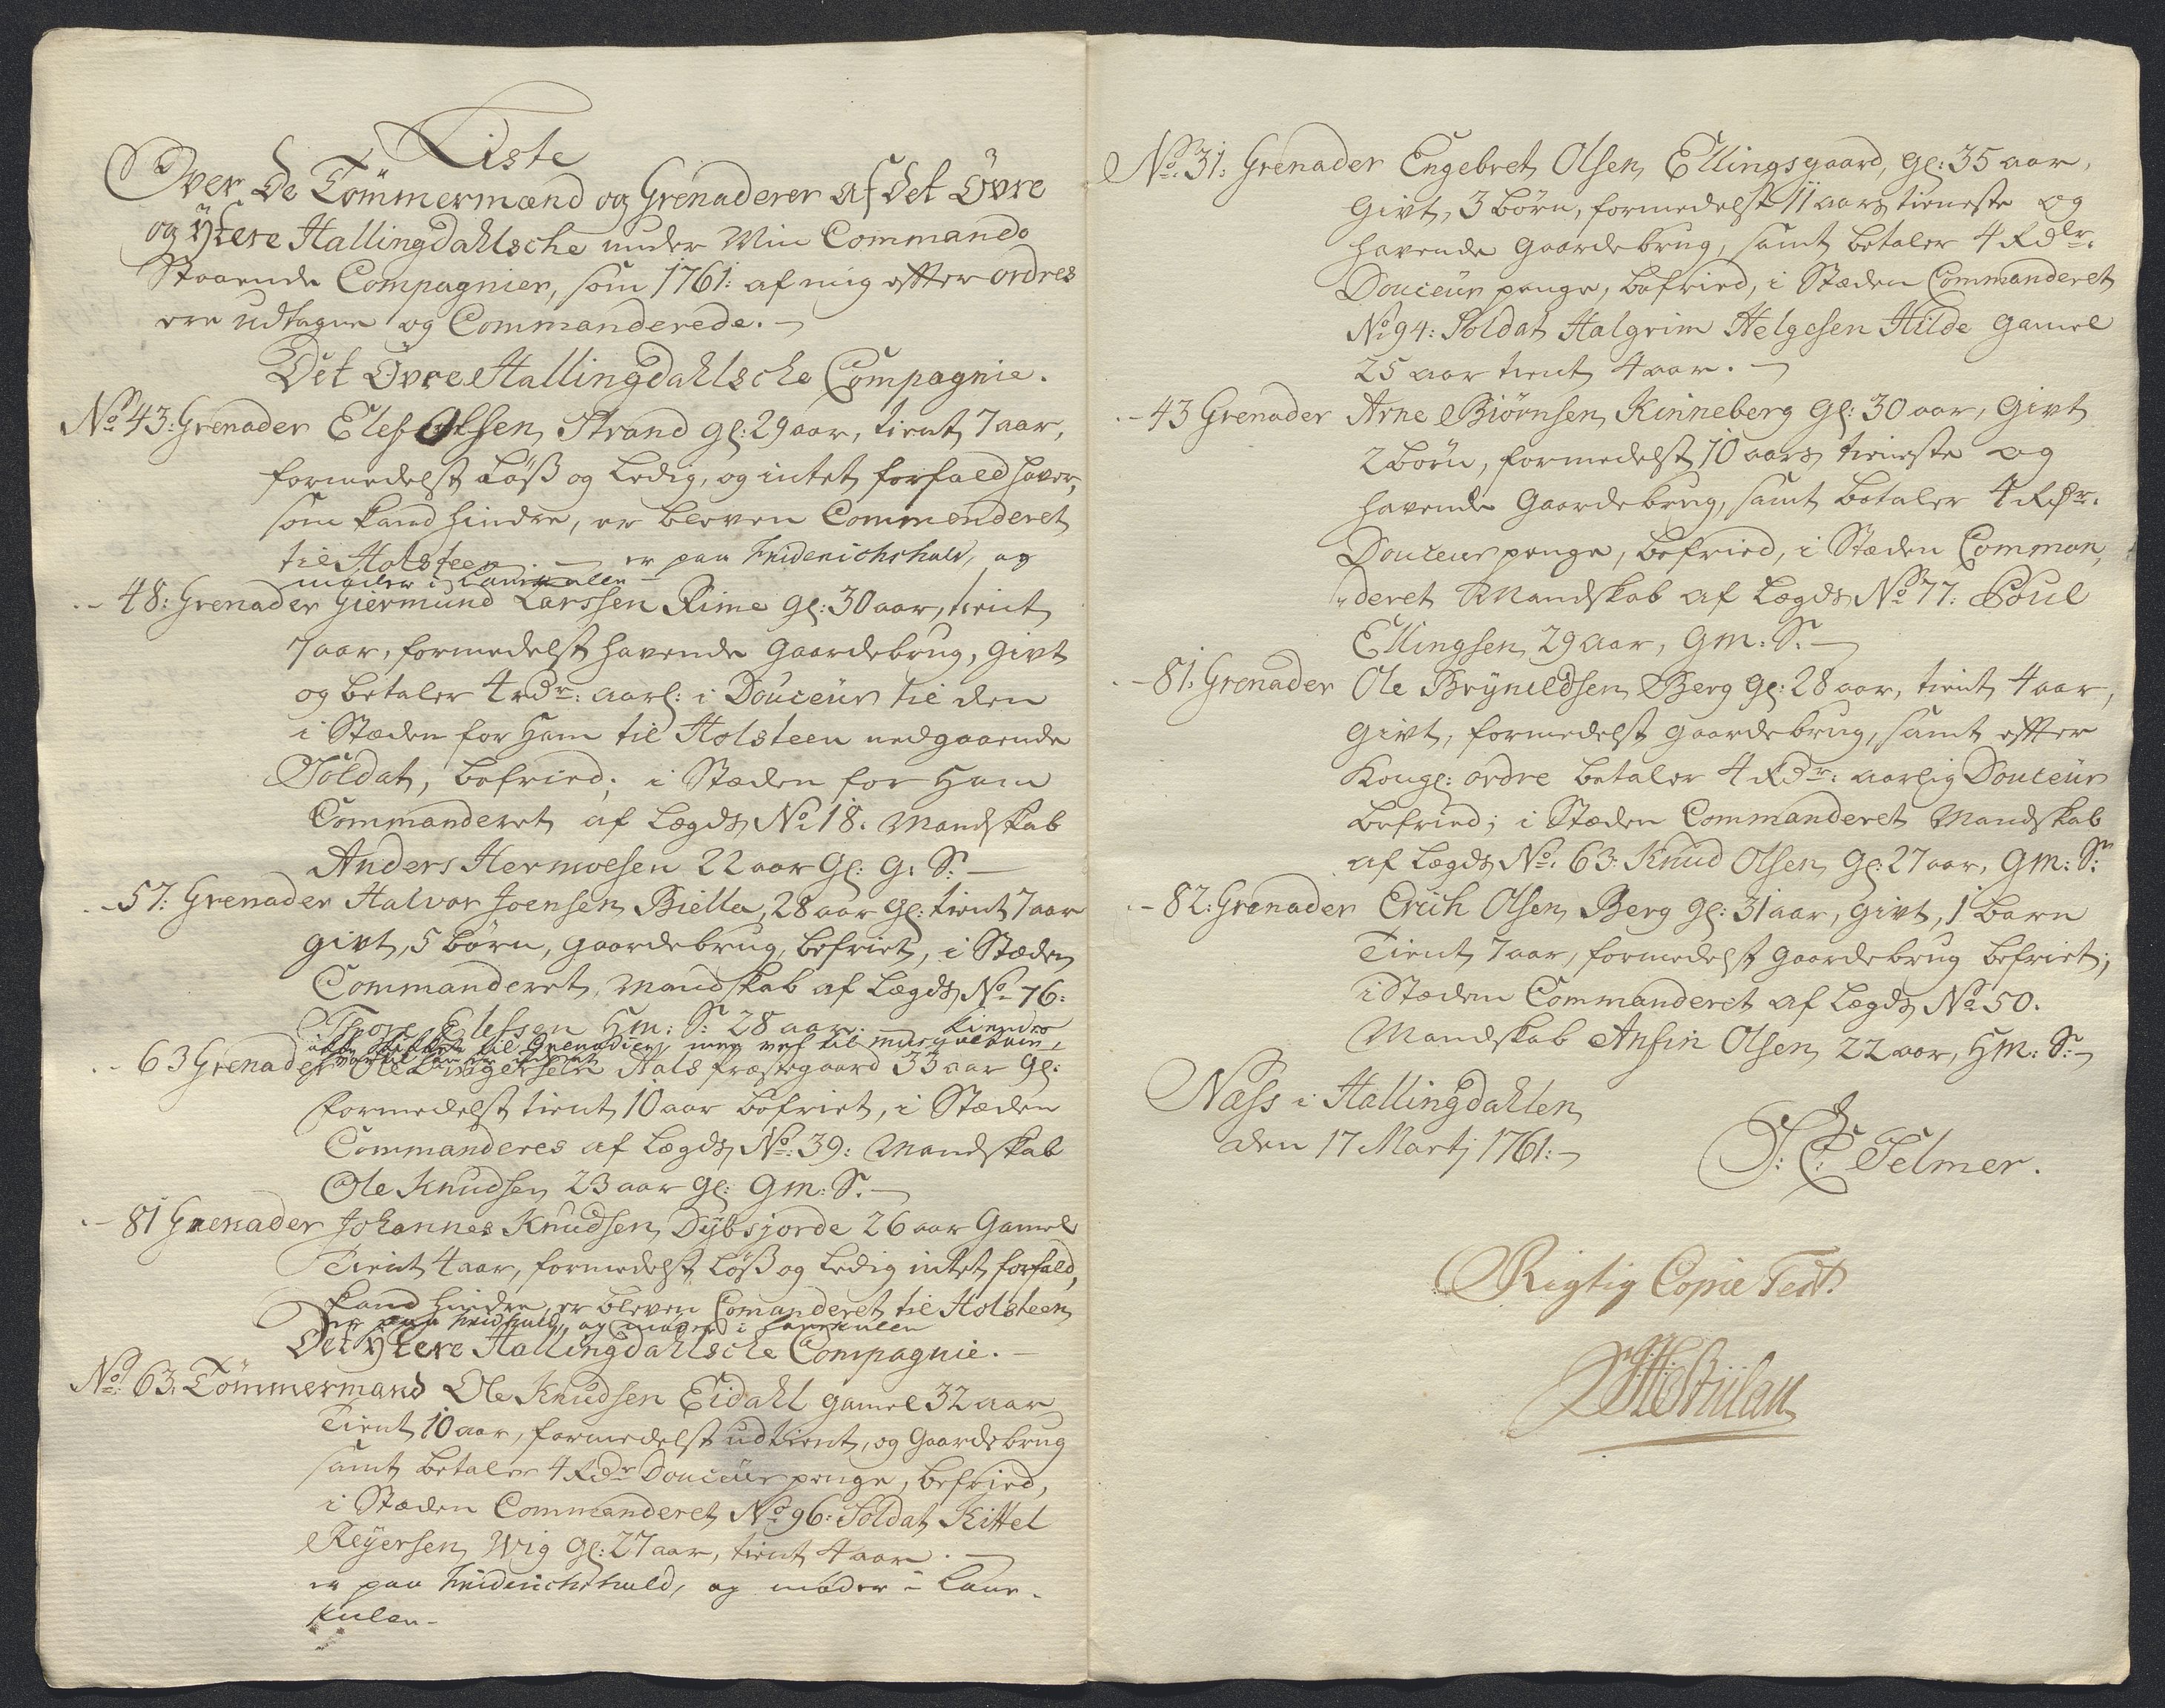 Liste
Over De Tömmermænd og Grenaderer af Det Övre
og Ÿtere Hallingdahlsche under Min Commando
Staaende Compagnier, som 1761: af mig efter ordres
ere udtagne og Commanderede. —
Det Övre Hallingdahlsche Compagnie.
No 43: Grenader Elef Olsen Strand gl: 29 aar, tient 7 aar,
formedelst Löß og Ledig, og intet forfald haver,
som kand hindre, er bleven Commenderet
til Holsteen. — er paa Friderichshald, og
möder i
48: Grenader Giermund Larssen Rime gl: 30 aar, tient
7 aar, formedelst havende Gaardebrug, givt
og betaler 4 rdr: aarl: i Douceur til den
i Stæden for Ham til Holsteen nedgaaende
Soldat, befried; i Stæden for Ham
Commanderet af Lægds No 18. Mandskab
Anders Hermoesen 22 aar gl: G: S: —
57: Grenader Halvor Joensen Biella, 28 aar gl: tient 7 aar
givt, 5 börn, Gaardebrug, befriet, i Stæden
Commanderet, Mandskab af Lægds No 76:
Thore Elefsen Hm: S: 28 aar. — kiendes
ikke til Grenadier, men vel til
63 Grenader Ole Hals Præstegaard 33 aar gl:
formedelst tient 10 aar befriet, i Stæden
Commanderes af Lægds No: 39: Mandskab
Ole Knudsen 23 aar gl: Gm: S. —
81 Grenader Johannes Knudsen Dybsjorde 26 aar Gamel
Tient 4 aar, formedelst Löß og Ledig intet forfald,
kand hindre, er bleven Comanderet til Holsteen
er paa Fridhald, og möder i
Det Ÿtere Hallingdahlsche Compagnie. —
No: 63. Tömmermand Ole Knudsen Eidahl gamel 32 aar
Tient 10 aar, formedelst udtient, og Gaardebrug
samt betaler 4 Rdr Douceur penge, befried,
i Stæden Commanderet No 96: Soldat Kittel
Reÿersen Wig gl: 27 aar, tient 4 aar. —
er paa Friderichshald, og möder i Laur-
kulen.
No. 31: Grenader Engebret Olsen Ellingsgaard, gl: 35 aar,
Givt, 3 börn, formedelst 11 aars tieneste og
havende Gaardebrug, samt betaler 4 Rdlr.
Douceur penge, befried, i Stæden Commanderet
No 94: Soldat Halgrim Helgesen Hilde Gamel
25 aar tient 4 aar. —
43 Grenader Arne Biörnsen Kinneberg gl: 30 aar, Givt
2 börn, formedelst 10 aars tieneste og
havende Gaardebrug, samt betaler 4 Rdr.
Douceur penge, befried, i Stæden Comman,
deret Mandskab af Lægds No 77: Poul
Ellingsen 29 aar, Gm: S. —
81. Grenader Ole Brÿnildsen Berg gl: 28 aar, tient 4 aar,
Givt, formedelst Gaardebrug, samt efter
Kongl: ordre betaler 4 Rdr: aarlig Douceur
befried; i Stæden Commanderet Mandskab
af Lægds No. 63. Knud Olsen gl: 27 aar, Gm: S:
82: Grenader Erich Olsen Berg gl: 31 aar, givt, 1 barn
Tient 7 aar, formedelst Gaardebrug befriet;
i Stæden Commanderet af Lægds No 50.
Mandskab Ansin Olsen 22 aar, Hm: S: —
Næss i Hallingdahlen
den 17 Marti 1761: —
J: C: Telmer.
Rigtig Copie Test.